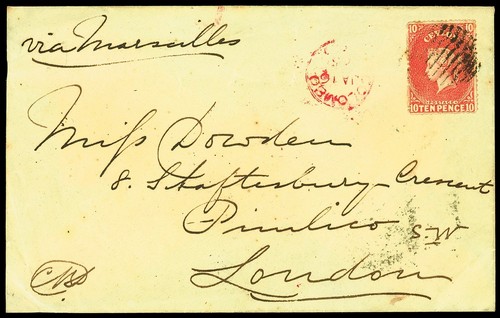 via Marseilles
10 CEYLON 10
POSTAGE
10 TEN PENCE 10
Miss Dowden
8. Shaftesbury Crescent
Pimlico S.W.
London